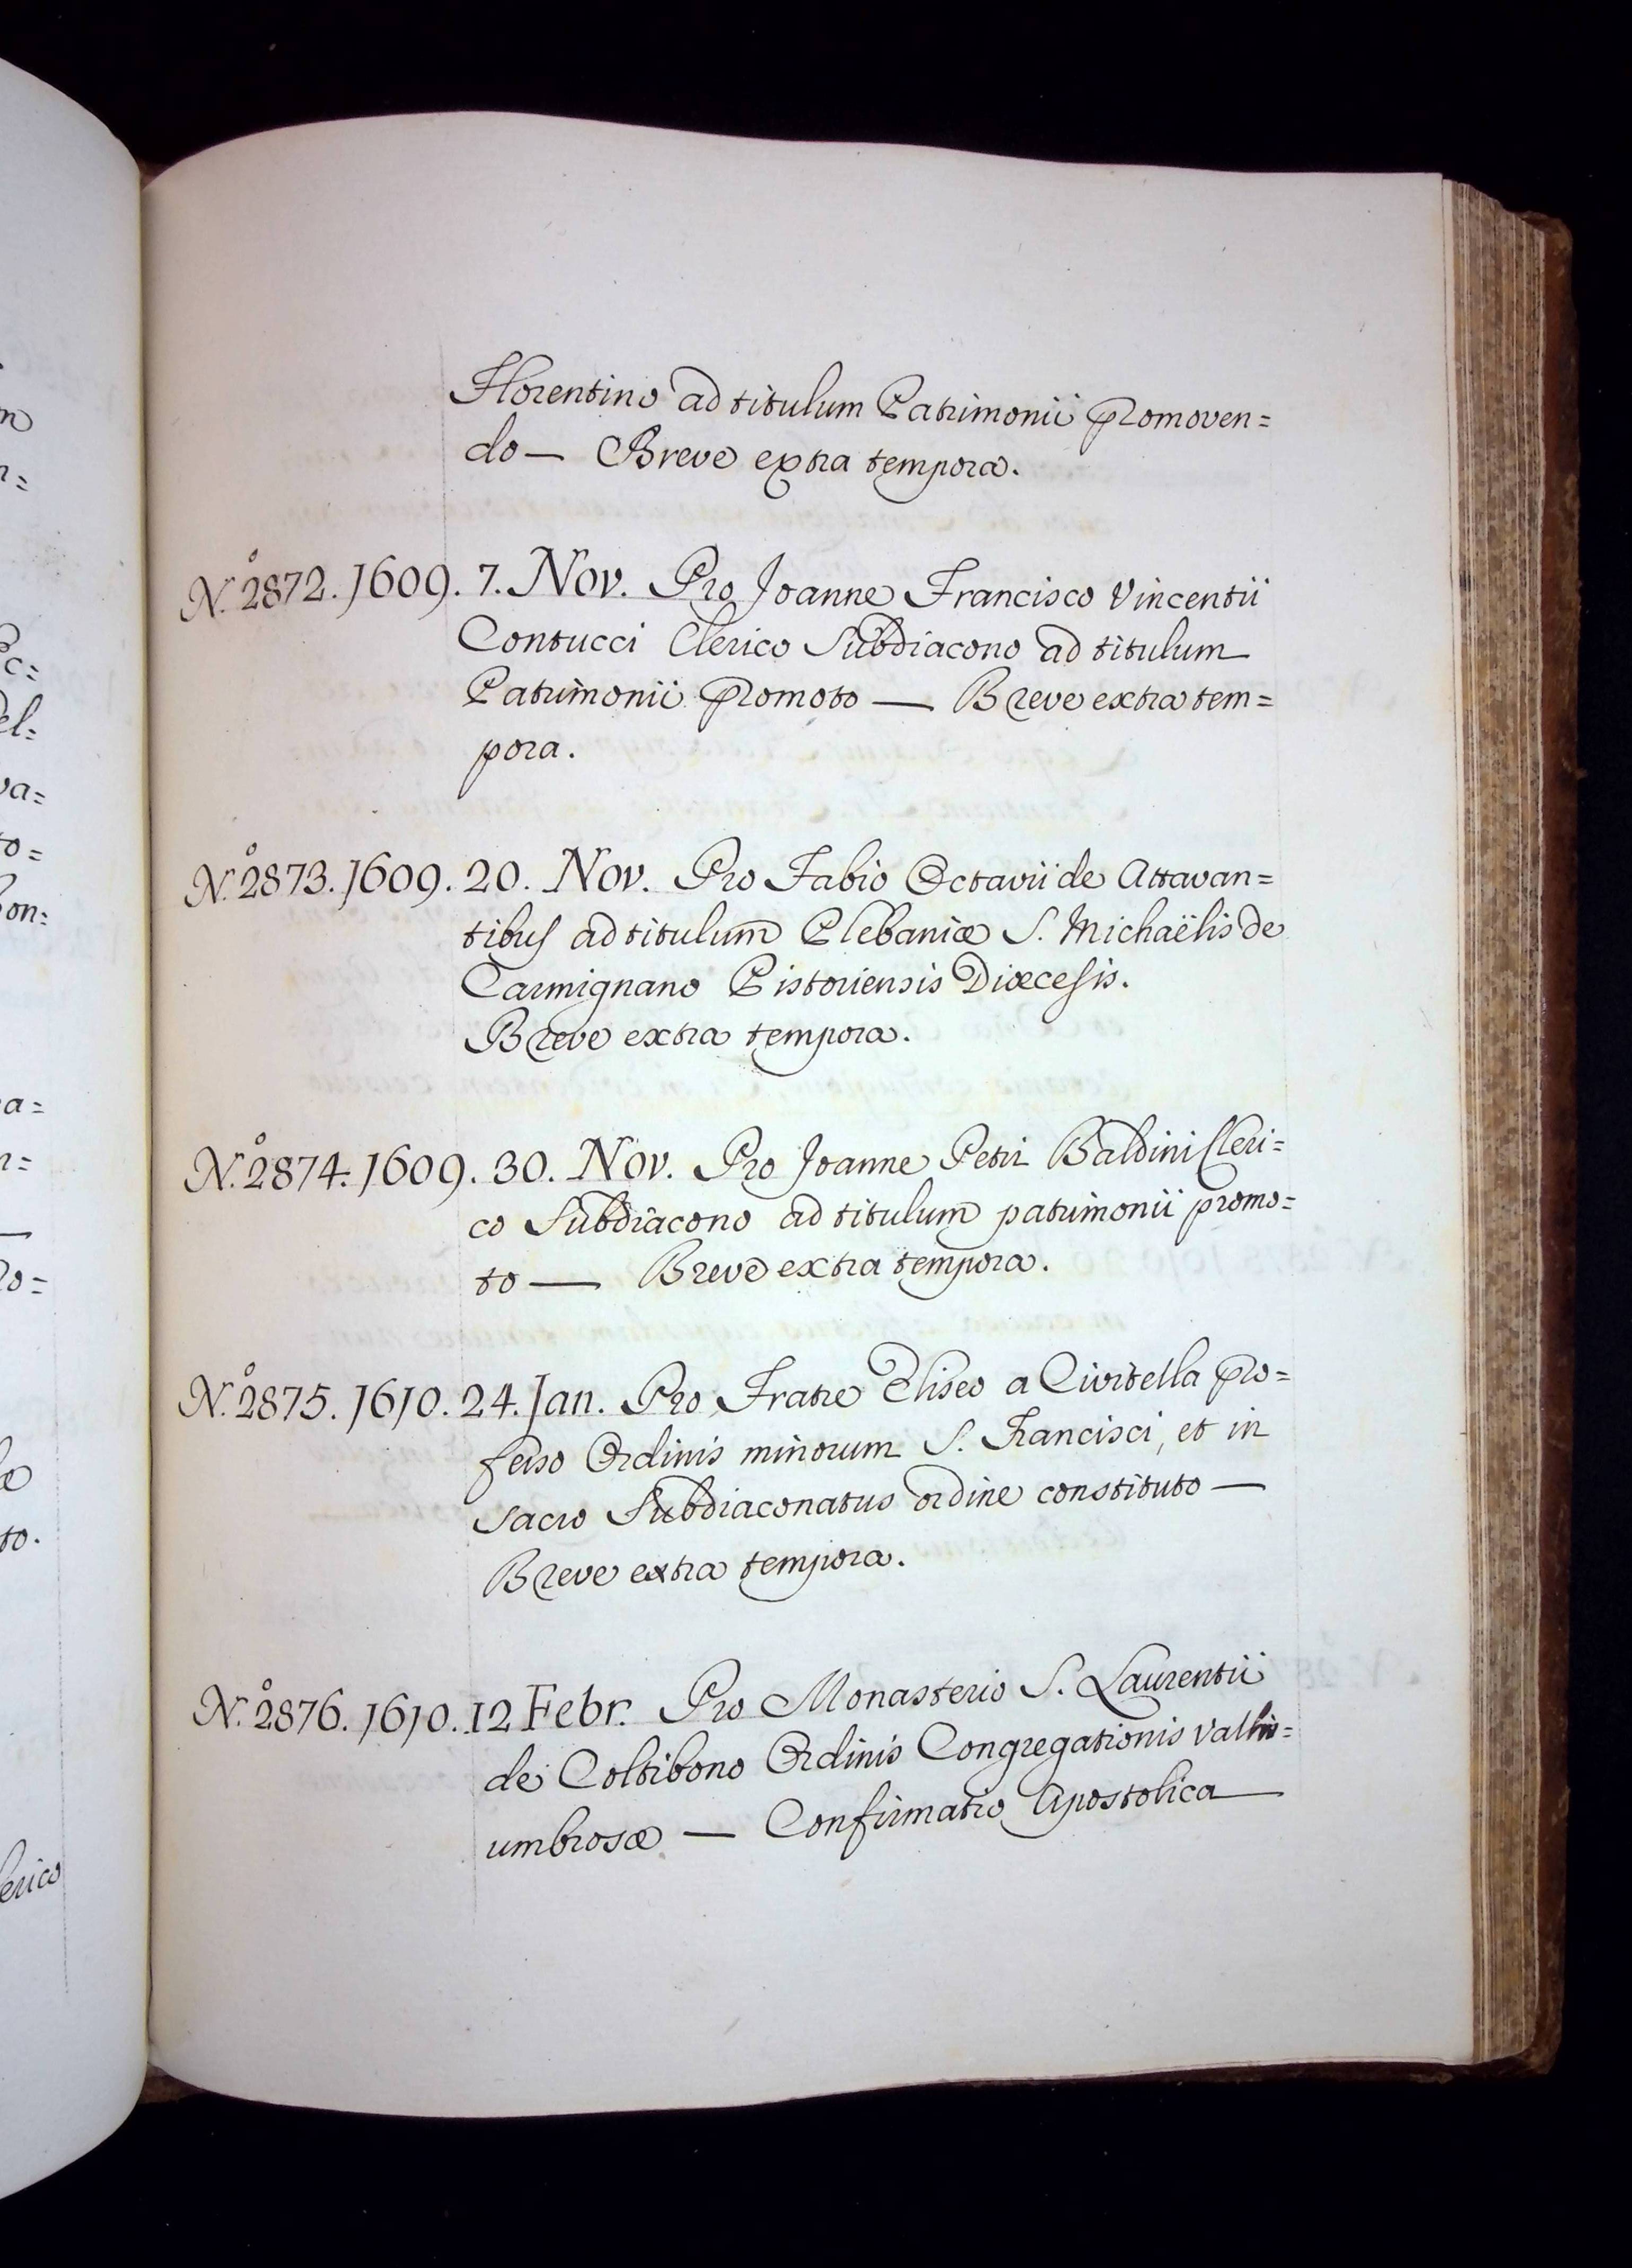 Florentino ad titulum Patrimonii Promoven=
do — Breve extra tempora.
N.º 2872. 1609. 7. Nov. Pro Joanne Francisco Vincentii
Contucci Clerico Subdiacono ad titulum
Patrimonii Promoto — Breve extra tem=
pora.
N.º 2873. 1609. 20. Nov. Pro Fabio Octavii de Attavan=
tibus ad titulum Plebaniæ S. Michaëlis de
Carmignano Pistoriensis Diœcesis.
Breve extra tempora.
N.º 2874. 1609. 30. Nov. Pro Joanne Petri Baldini Cleri=
co Subdiacono ad titulum patrimonii promo=
to — Breve extra tempora.
N.º 2875. 1610. 24. Jan. Pro Fratre Eliseo a Civitella pro=
fesso Ordinis minorum S. Francisci, et in
sacro Subdiaconatus ordine constituto —
Breve extra tempora.
N.º 2876. 1610. 12 Febr. Pro Monasterio S. Laurentii
de Coltibono Ordinis Congregationis Vallis=
umbrosæ — Confirmatio Apostolica —